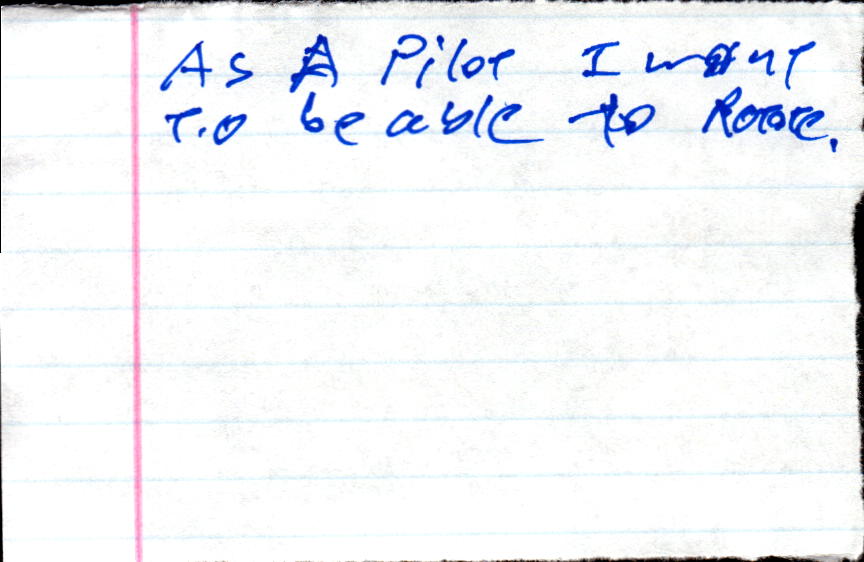 As A Pilot I want
to be able to Rotate.